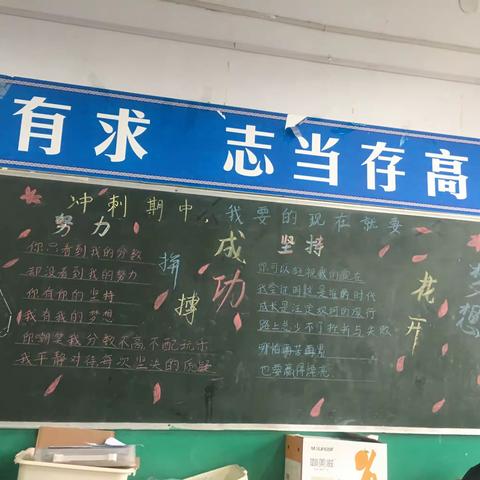 有求 志当存高
冲刺期中，我要的现在就要
努力
你只看到我的分数
却没看到我的努力
你有你的坚持
我有我的梦想
你嘲笑我分数不高不配玩乐
我平静对待每次尘决的质疑
拼搏
成功
坚持
你可以轻视我们的存在
我会证明这是谁的时代
成长是注定孤独的旅行
路上总少不了挫折与失败
哪怕再苦再累
也要赢得漂亮
花开
梦想
咖美滋